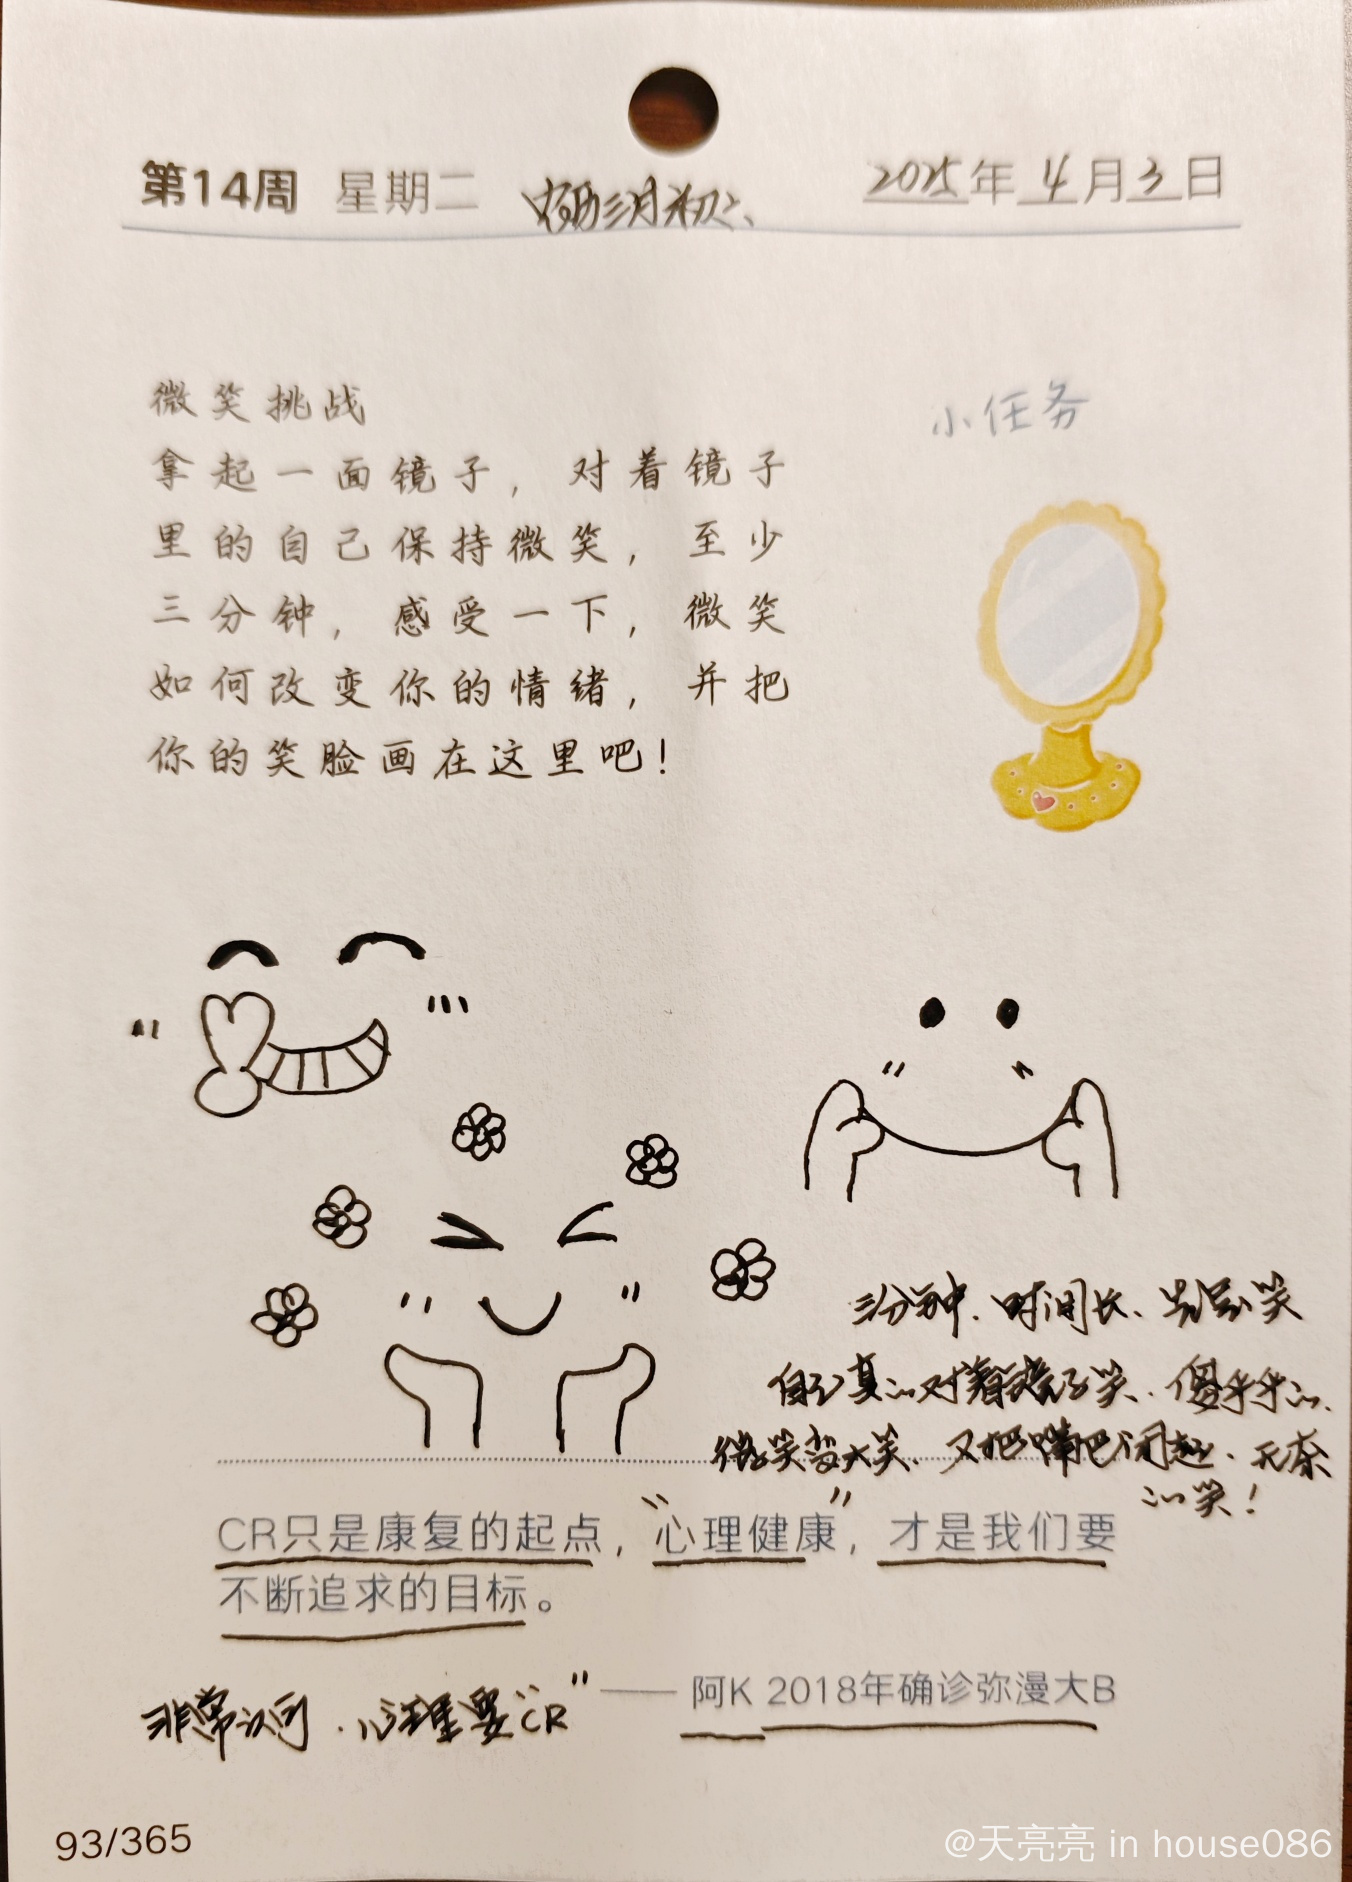 第14周 星期二 农历三月初六、 2025年4月3日
微笑挑战
小任务
拿起一面镜子，对着镜子
里的自己保持微笑，至少
三分钟，感受一下，微笑
如何改变你的情绪，并把
你的笑脸画在这里吧！
三分钟、时间长、笑
自己真的对着镜子笑、傻乎乎的、
微笑变大笑、又把嘴巴闭起、无奈
的笑！
CR只是康复的起点，“心理健康”，才是我们要
不断追求的目标。
——阿K 2018年确诊弥漫大B
非常认可、心理要“CR”
93/365
@天亮亮 in house086